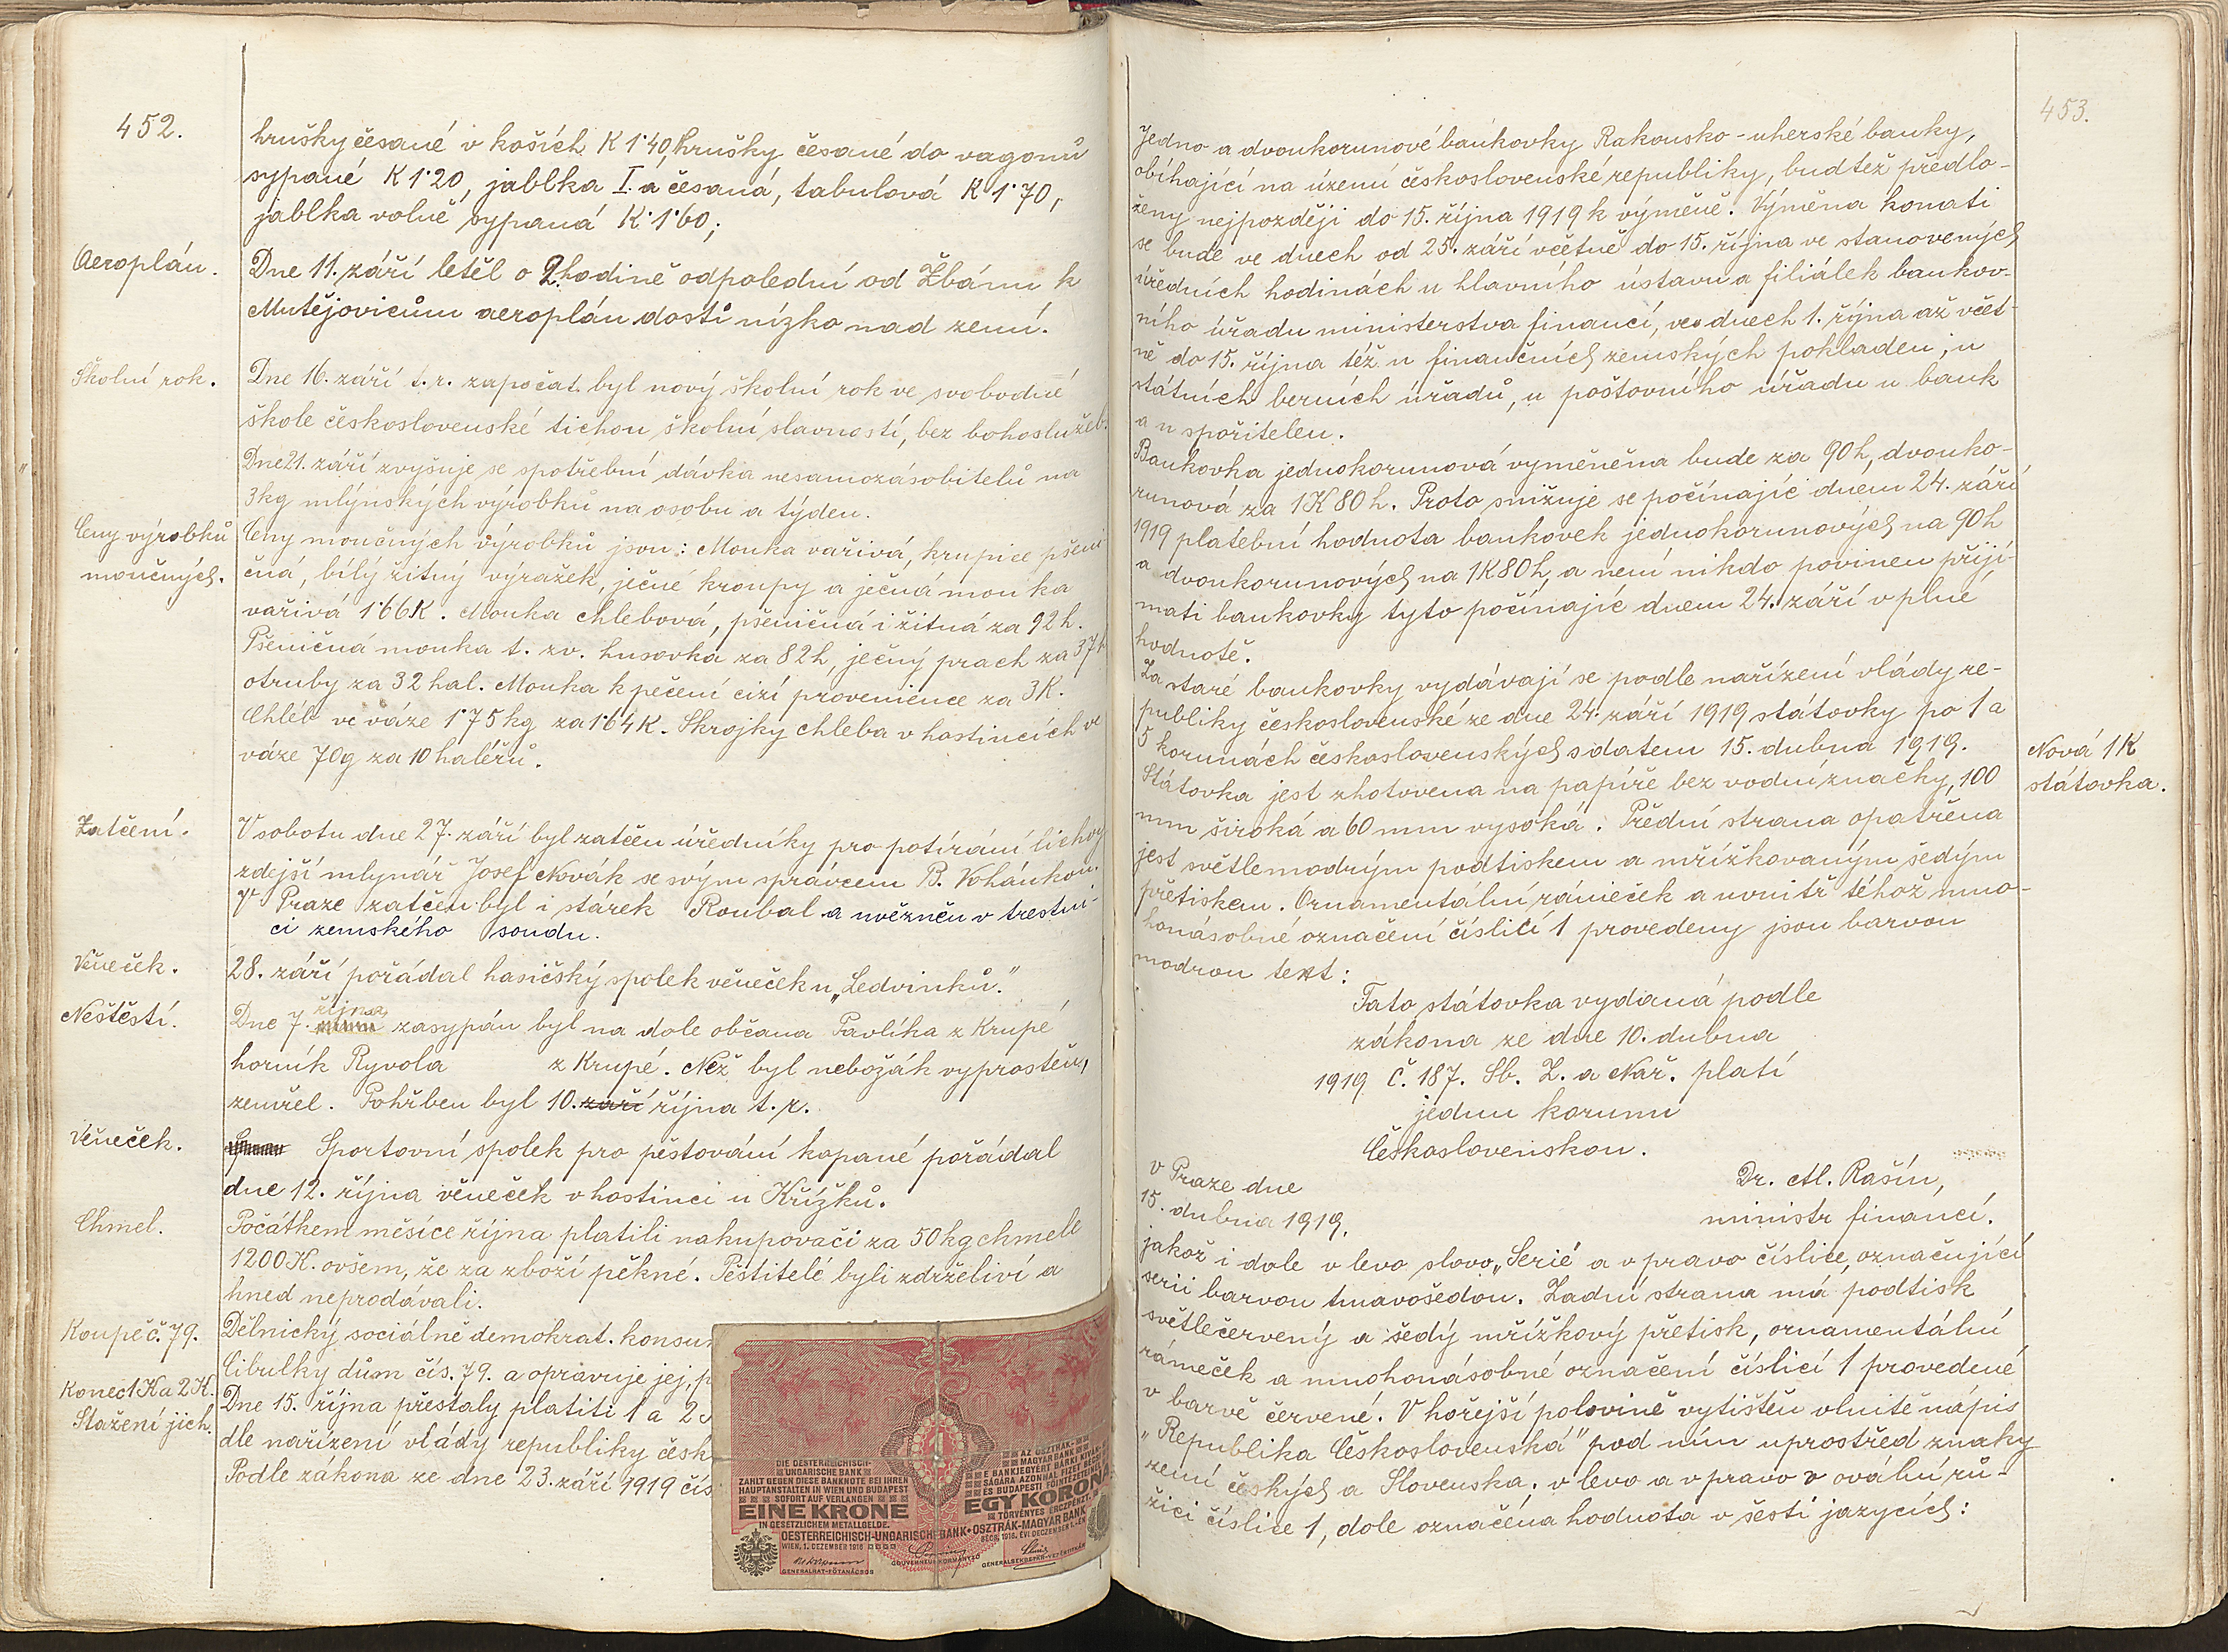 452.
hrušky česané v koších K 1·40, hrušky česané do vagonů
sypané K 1·20, jablka I. a česaná, tabulová K 1·70,
jablka volně sypaná K·1·60;
Aeroplán.
Dne 11. září letěl o 2. hodině odpolední od Žbánu k
Mutějovicům aeroplán dosti nízko nad zemí.
Školní rok.
Dne 16. září t. r. započat byl nový školní rok ve svobodné
škole československé tichou školní slavností, bez bohoslužeb.
Dne 21. září zvyšuje se spotřební dávka nesamozásobitelů na
3kg mlýnských výrobků na osobu a týden.
Ceny výrobků
moučných.
Ceny moučných výrobků jsou: Mouka vařivá, krupice pšeni
čná, bílý žitný výražek, ječné kroupy a ječná mouka
vařivá 1·66K. Mouka chlebová, pšeničná i žitná za 92 h.
Pšeničná mouka t. zv. husovka za 82h, ječný prach za 37h
otruby za 32 hal. Mouka k pečení cizí provenience za 3K.
Chléb ve váze 1·75 kg za 1·64K. Skrojky chleba v hostincích ve
váze 70g za 10 haléřů.
Zatčení.
V sobotu dne 27. září byl zatčen úředníky pro potírání lichvy
zdejší mlynář Josef Novák se svým správcem B. Vohánkou.
V Praze zatčen byl i stárek Roubal a uvězněn v trestni-
ci zemského soudu.
Věneček.
28. září pořádal hasičský spolek věneček u „Ledvinků."
Neštěstí.
října
Dne 7. zasypán byl na dole občana Pavlíka z Krupé
horník Ryvola z Krupé. Než byl nebožák vyproštěn,
zemřel. Pohřben byl 10. září října t. r.
Věneček.
Sportovní spolek pro pěstování kopané pořádal
dne 12. října věneček v hostinci u Křížků.
Chmel.
Počátkem měsíce října platili nakupovači za 50 kg chmele
1200 K. ovšem, že za zboží pěkné. Pěstitelé byli zdrželiví a
hned neprodávali.
Koupě č. 79.
Dělnický sociálně demokrat. konsum
Cibulky dům čís. 79. a opravuje jej, p
Konec 1K a 2K.
Stažení jich.
Dne 15. října přestaly platiti 1 a 2
dle nařízení vlády republiky česk
Podle zákona ze dne 23. září 1919 čís
DIE OESTERREICHISCH-
UNGARISCHE BANK
ZAHLT GEGEN DIESE BANKNOTE BEI IHREN
HAUPTANSTALTEN IN WIEN UND BUDAPEST
SOFORT AUF VERLANGEN
EINE KRONE
IN GESETZLICHEM METALLGELDE.
AZ OSZTRÁK-
MAGYAR BANK
E BANKJEGYÉRT BÁRKI KIVÁN-
SÁGÁRA AZONNAL FIZET BÉCSI
ÉS BUDAPESTI FŐINTÉZETEINÉL
EGY KORONA
TÖRVÉNYES ÉRCZPÉNZT.
OESTERREICHISCH-UNGARISCHE BANK • OSZTRÁK-MAGYAR BANK
WIEN, 1. DEZEMBER 1916
BÉCS, 1916. ÉVI DECZEMBER 1.-ÉN
GENERALRAT-FŐTANÁCSOS
GOUVERNEUR-KORMÁNYZÓ
GENERALSEKRETÄR-VEZÉRTITKÁR
453.
Jedno a dvoukorunové bankovky Rakousko-uherské banky,
obíhající na území československé republiky, buďtež předlo-
ženy nejpozději do 15. října 1919 k výměně. Výměna konati
se bude ve dnech od 25. září včetně do 15. října ve stanovených
úředních hodinách u hlavního ústavu a filiálek bankov-
ního úřadu ministerstva financí, ve dnech 1. října až včet-
ně do 15. října též u finančních zemských pokladen, u
státních berních úřadů, u poštovního úřadu u bank
a u spořitelen.
Bankovka jednokorunová vyměněna bude za 90 h, dvouko-
runová za 1K 80 h. Proto snižuje se počínajíc dnem 24. září
1919 platební hodnota bankovek jednokorunových na 90h
a dvoukorunových na 1K80h, a není nikdo povinen přijí-
mati bankovky tyto počínajíc dnem 24. září v plné
hodnotě.
Za staré bankovky vydávají se podle nařízení vlády re-
publiky československé ze dne 24. září 1919 státovky po 1 a
5 korunách československých s datem 15. dubna 1919.
Nová 1K
státovka.
Státovka jest zhotovena na papíře bez vodní značky, 100
mm široká a 60 mm vysoká. Přední strana opatřena
jest světlemodrým podtiskem a mřížkovaným šedým
přetiskem. Ornamentální rámeček a uvnitř téhož mno-
honásobné označení číslicí 1 provedeny jsou barvou
modrou text:
Tato státovka vydaná podle
zákona ze dne 10. dubna
1919 č. 187. Sb. Z. a Nař. platí
jednu korunu
Československou.
v Praze dne
15. dubna 1919.
Dr. Al. Rašín,
ministr financí.
jakož i dole v levo slovo „Serie" a v pravo číslice, označující
serii barvou tmavošedou. Zadní strana má podtisk
světlečervený a šedý mřížkový přetisk, ornamentální
rámeček a mnohonásobné označení číslicí 1 provedené
v barvě červené. V hořejší polovině vytištěn vlnitě nápis
„Republika Československá" pod ním uprostřed znaky
zemí českých a Slovenska, v levo a v pravo v ovální rů-
žici číslice 1, dole označena hodnota v šesti jazycích: